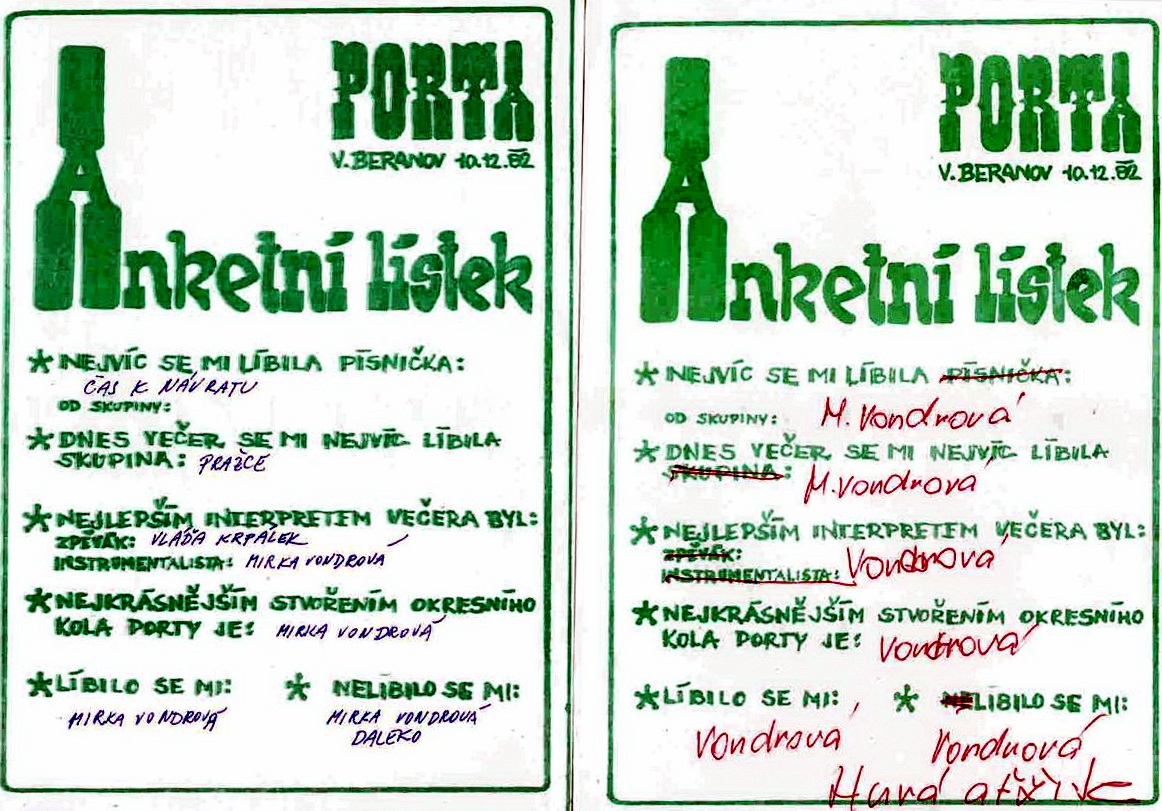 PORTA
V. BERANOV 10.12.82
Anketní lístek
* NEJVÍC SE MI LÍBILA PÍSNIČKA:
ČAS K NÁVRATU
OD SKUPINY:
* DNES VEČER SE MI NEJVÍC LÍBILA
SKUPINA: PRAŽCE
* NEJLEPŠÍM INTERPRETEM VEČERA BYL:
ZPĚVÁK: VLÁĎA KRPÁLEK
INSTRUMENTALISTA: MIRKA VONDROVÁ
* NEJKRÁSNĚJŠÍM STVOŘENÍM OKRESNÍHO
KOLA PORTY JE: MIRKA VONDROVÁ
* LÍBILO SE MI: * NELÍBILO SE MI:
MIRKA VONDROVÁ MIRKA VONDROVÁ
DALEKO
PORTA
V. BERANOV 10.12.82
Anketní lístek
* NEJVÍC SE MI LÍBILA PÍSNIČKA:
OD SKUPINY: M. Vondrová
* DNES VEČER SE MI NEJVÍC LÍBILA
SKUPINA: M. Vondrová
* NEJLEPŠÍM INTERPRETEM VEČERA BYL:
ZPĚVÁK:
INSTRUMENTALISTA: Vondrová
* NEJKRÁSNĚJŠÍM STVOŘENÍM OKRESNÍHO
KOLA PORTY JE: Vondrová
* LÍBILO SE MI: * NELÍBILO SE MI:
Vondrová Vondrová
Hurá